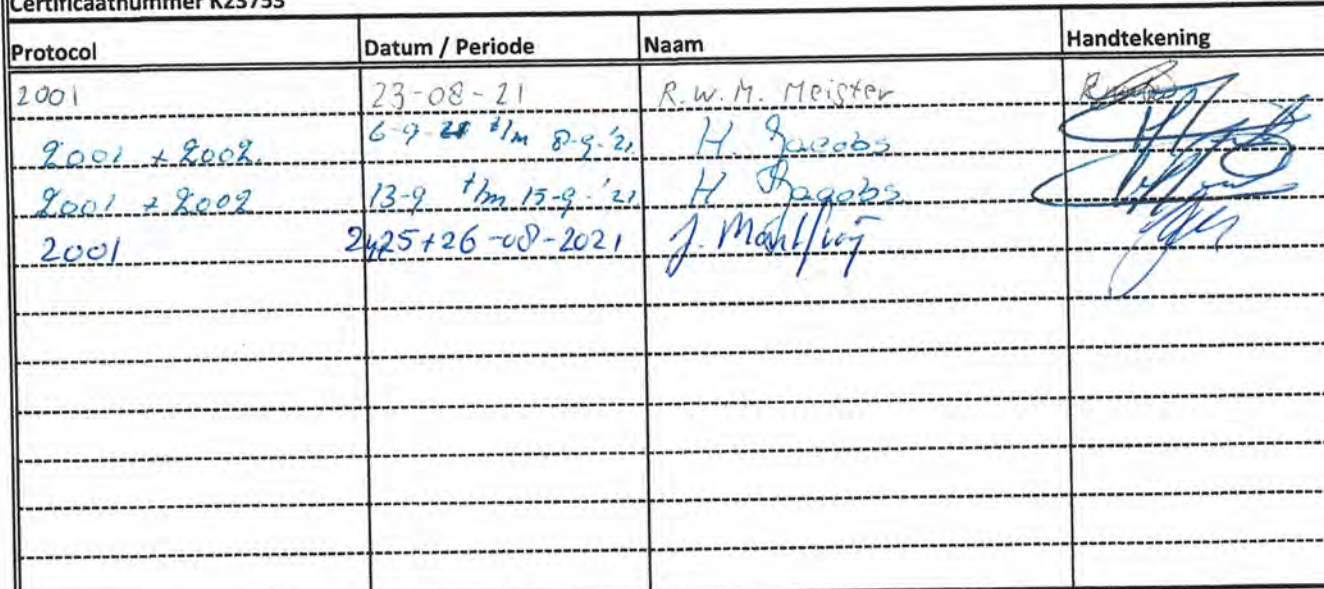 Certificaatnummer K23753
Protocol Datum / Periode Naam Handtekening
2001 23-08-21 R.W.M. Meister
2001 + 2002. 6-9-21 t/m 8-9-'21 H. Jacobs
2001 + 2002 13-9 t/m 15-9-'21 H Jacobs
2001 24,25+26-08-2021 J.